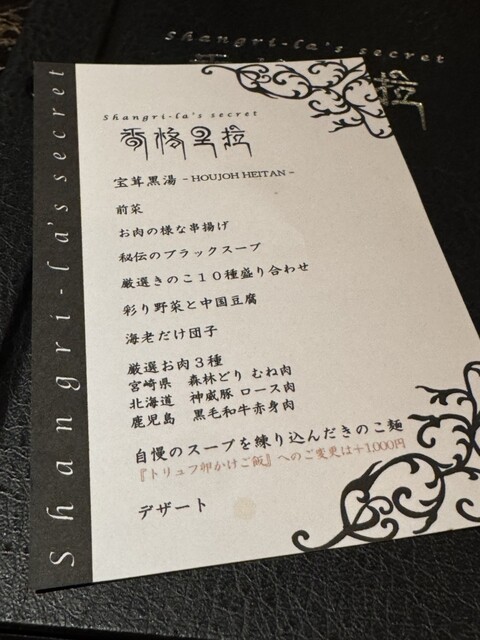 Shangri-la's secret
Shangri-la's secret
Shangri-la's secret
香格里拉
宝茸黒湯 - HOUJOH HEITAN -
前菜
お肉の様な串揚げ
秘伝のブラックスープ
厳選きのこ10種盛り合わせ
彩り野菜と中国豆腐
海老だけ団子
厳選お肉3種
宮崎県 森林どり むね肉
北海道 神威豚 ロース肉
鹿児島 黒毛和牛赤身肉
自慢のスープを練り込んだきのこ麺
『トリュフ卵かけご飯』へのご変更は+1,000円
デザート